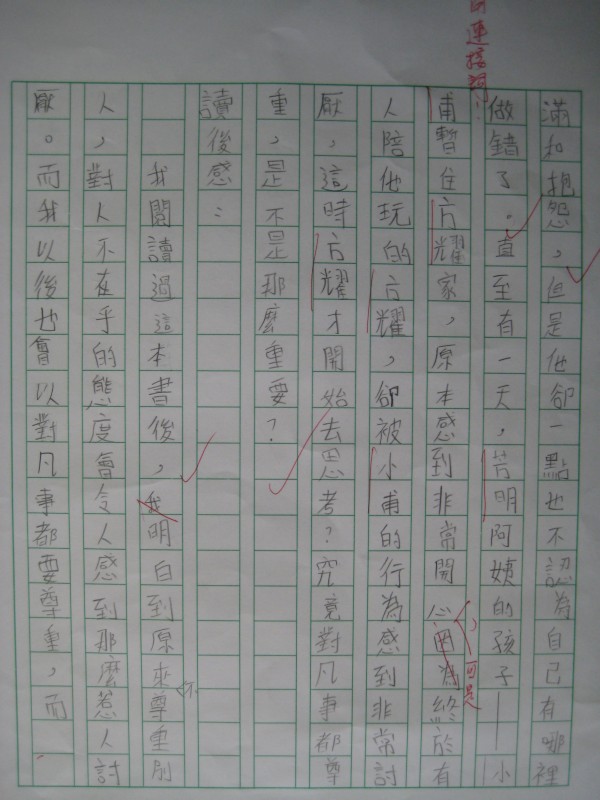 的連接詞!
滿扣抱怨,但是他卻一點也不認為自己有哪裡
做錯了。直至有一天,芳明阿姨的孩子—小
甫暫住方耀家,原本感到非常開心因為終於有
,可是
人陪他玩的方耀,卻被小甫的行為感到非常討
厭,這時方耀才開始去思考?究竟對凡事都尊
重,是不是那麼重要?
讀後感:
我閱讀過這本書後,我明白到原來不尊重別
人,對人不在乎的態度會令人感到那麼惹人討
厭。而我以後也會以對凡事都要尊重,而